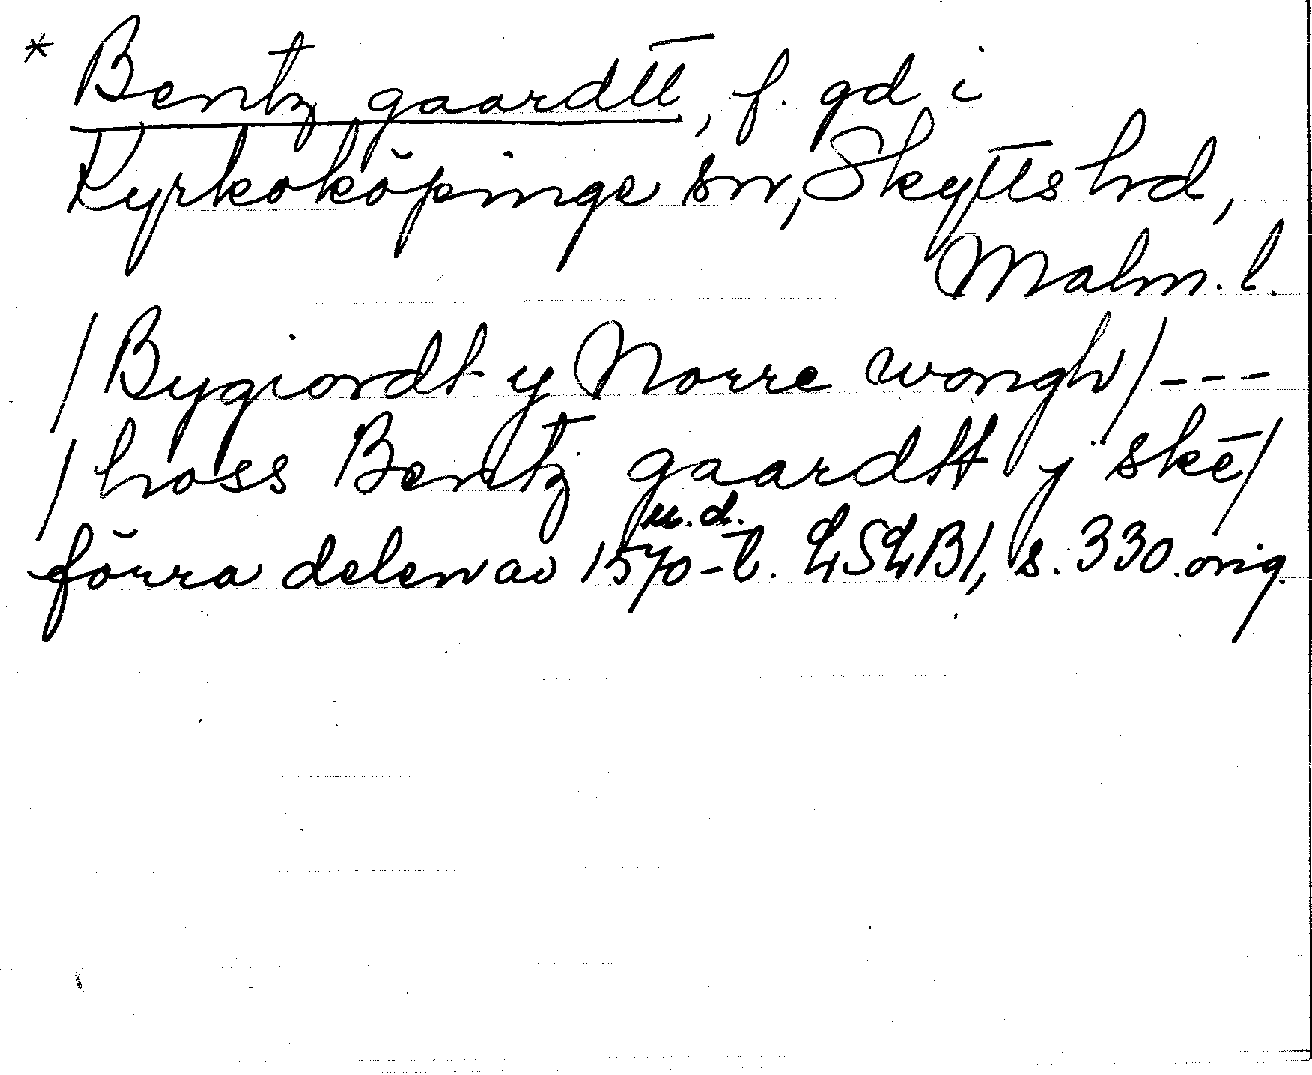 * Bentz gaardtt, f. gd i
Kyrkoköpinge sn, Skytts hd,
Malm. l.
/Bygiordt y Norre wongh/---
/hoss Bentz gaardtt y skē/
u.d.
förra delen av 1570-t. LSLB1, s. 330. orig.